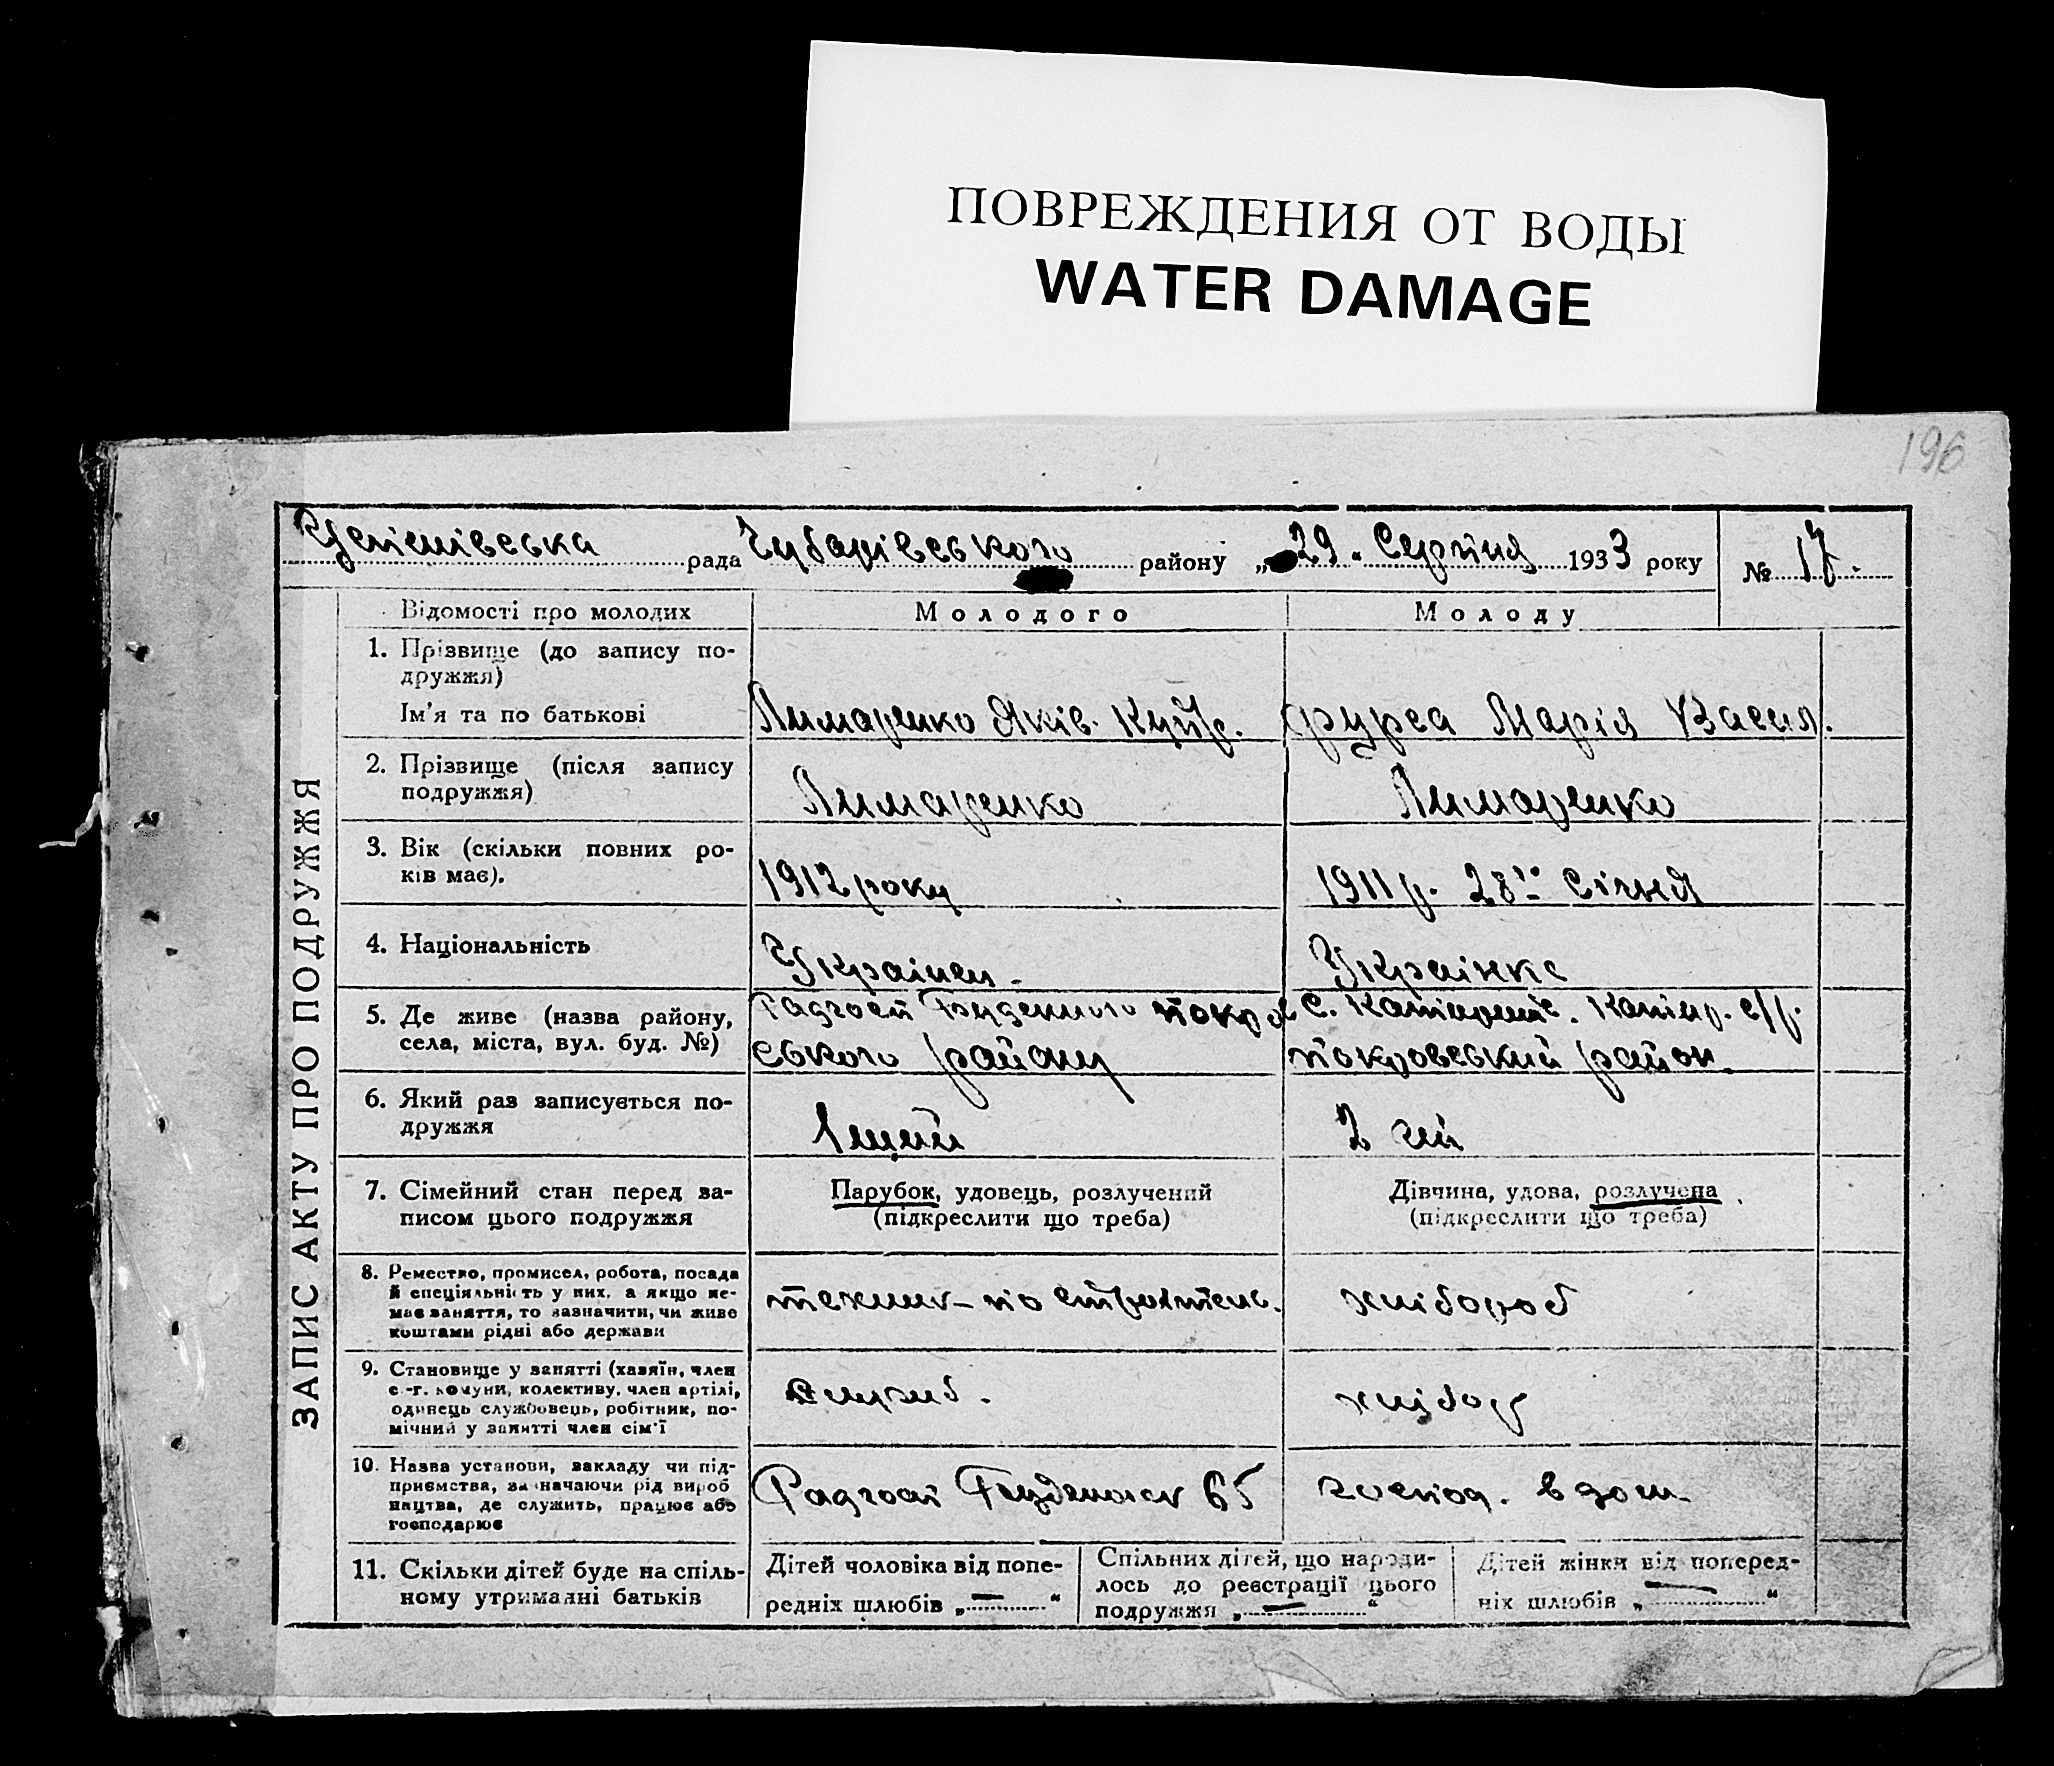 ПОВРЕЖДЕНИЯ ОТ ВОДЫ
WATER DAMAGE
196
рада Чубарівського району „29" Серпня 1933 року № 17.
ЗАПИС АКТУ ПРО ПОДРУЖЖЯ
Відомості про молодих Молодого Молоду
1. Прізвище (до запису по-
дружжя)
Ім'я та по батькові
Лимаренко Яків. Купр. Фурса Марія Васил.
2. Прізвище (після запису
подружжя)
Лимаренко Лимаренко
3. Вік (скільки повних ро-
ків має).
1912 року 1911 р. 28го Січня
4. Національність
Украінец. Украінка
5. Де живе (назва району,
села, міста, вул. буд. №)
Радгосп Буденного покров
ського району
с. с/р.
покровський район.
6. Який раз записується по-
дружжя
1 2 гий
7. Сімейний стан перед за-
писом цього подружжя
Парубок, удовець, розлучений
(підкреслити що треба)
Дівчина, удова, розлучена
(підкреслити що треба)
8. Ремество, промисел, робота, посада
й спеціяльність у них, а якщо не-
має заняття, то зазначити, чи живе
коштами рідні або держави
техник – по хлібороб
9. Становище у занятті (хазяїн, член
с.-г. комуни, колективу, член артілі,
одинець службовець, робітник, по-
мічний у занятті член сім'ї
хлібор
10. Назва установи, закладу чи під-
приємства, зазначаючи рід вироб
ництва, де служить, працює або
господарює
Радгосп 65 господ. в дом.
11. Скільки дітей буде на спіль-
ному утриманні батьків
Дітей чоловіка від попе-
редніх шлюбів „—“
Спільних дітей, що народи-
лось до реєстрації цього
подружжя „—“
Дітей жінки від поперед-
ніх шлюбів „—“